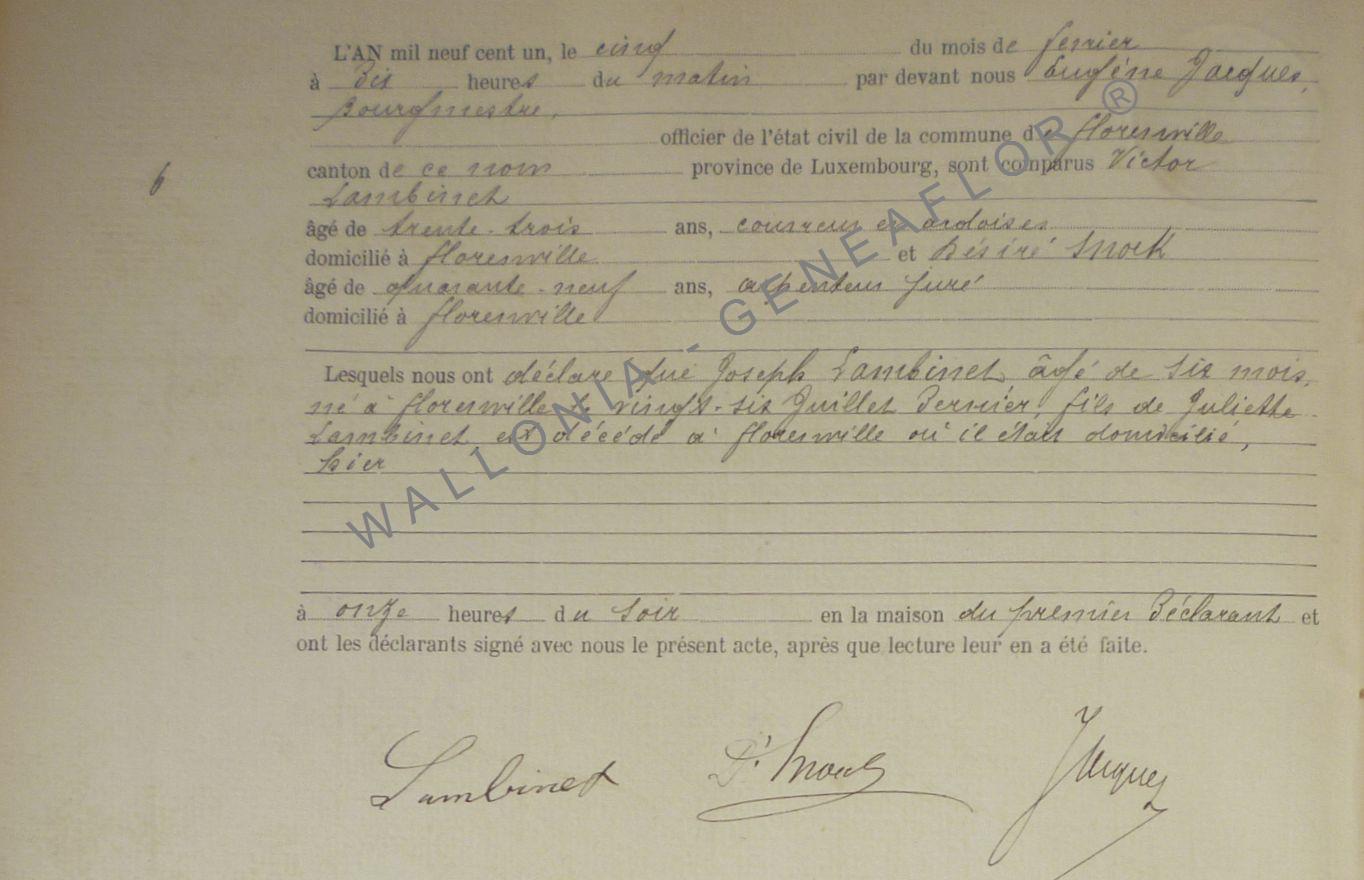 L'AN mil neuf cent un, le cinq du mois de fevrier
à Dix heures du matin par devant nous Eugène Jacques,
Bourgmestre,
officier de l'état civil de la commune de florenville
canton de ce nom province de Luxembourg, sont comparus Victor
Lambinet
âgé de trente-trois ans, couvreur en ardoises
domicilié à florenville et Désiré Snock
âgé de quarante-neuf ans, arpenteur juré
domicilié à florenville
Lesquels nous ont déclaré que Joseph Lambinet, âgé de six mois,
né à florenville le vingt-six Juillet Dernier, fils de Juliette
Lambinet, est décédé à florenville où il était domicilié,
hier
à onze heures du soir en la maison du premier Déclarant et
ont les déclarants signé avec nous le présent acte, après que lecture leur en a été faite.
6
Lambinet Dé Snock Jacques
WALLONIA - GENEAFLOR ®